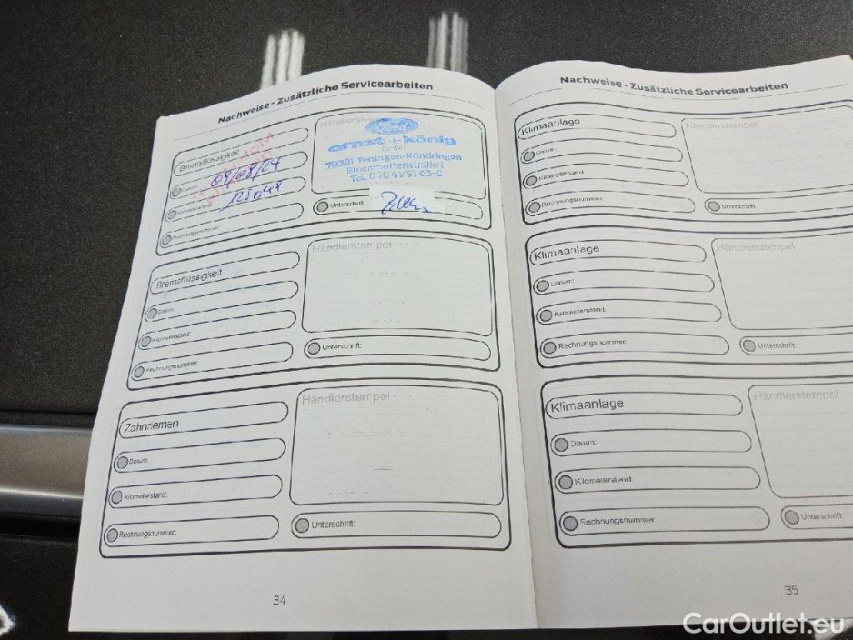 Nachweise - Zusätzliche Servicearbeiten
Bremsflüssigkeit
Datum:
Kilometerstand:
Rechnungsnummer:
Händlerstempel
Ford
ernst + könig
GmbH
79331 Teningen-Köndringen
Tel. 0 76 41/91 63-0
Unterschrift:
Bremsflüssigkeit
Datum:
Kilometerstand:
Rechnungsnummer:
Händlerstempel
Unterschrift:
Zahnriemen
Datum:
Kilometerstand:
Rechnungsnummer:
Händlerstempel
Unterschrift:
34
Nachweise - Zusätzliche Servicearbeiten
Klimaanlage
Datum:
Kilometerstand:
Rechnungsnummer:
Händlerstempel
Unterschrift:
Klimaanlage
Datum:
Kilometerstand:
Rechnungsnummer:
Händlerstempel
Unterschrift:
Klimaanlage
Datum:
Kilometerstand:
Rechnungsnummer:
Händlerstempel
Unterschrift:
35
CarOutlet.eu